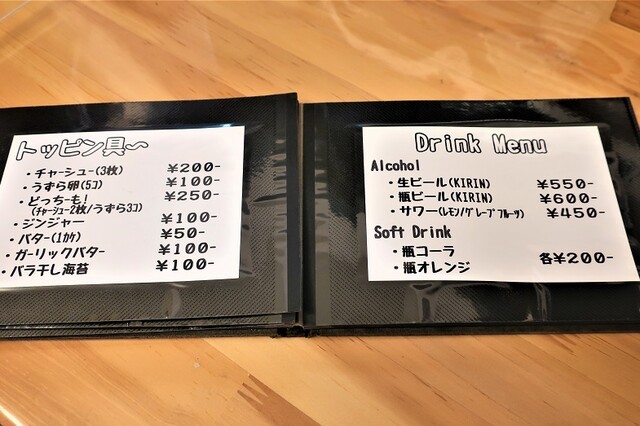 トッピン具〜
・チャーシュー(3枚) ¥200-
・うずら卵(5コ) ¥100-
・どっちも! ¥250-
(チャーシュー2枚/うずら3コ)
・ジンジャー ¥100-
・バター(1カケ) ¥50-
・ガーリックバター ¥100-
・バラ干し海苔 ¥100-
Drink Menu
Alcohol
・生ビール(KIRIN) ¥550-
・瓶ビール(KIRIN) ¥600-
・サワー(レモン/グレープフルーツ) ¥450-
Soft Drink
・瓶コーラ
・瓶オレンジ
各¥200-